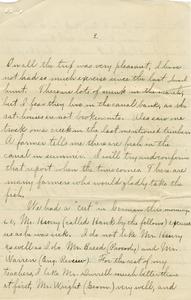 2.
On all the trip was very pleasant, I have
not had so much exercise since the last hard
hunt. There are lots of mink in the marsh,
but I fear they live in the canal bank, as the
rat houses in not broken into. Also saw one
track on a creek in the last mentioned timber
A farmer tells me there are fish in the
canal in summer. I will try and confirm
that report when the time comes. There are
many farmers who would gladly take the
fish.
We had a "cut" in German this morning,
i.e., Mr. Henry (called Hank by the fellows) excuse
us as he was sick. I do not like Mr. Henry
so well as I do Mr. Creed (Broody) and Mr.
Warren (Ang. Review). For the rest of my
teachers, I like Mr. Durrell much better than
at first, Mr. Wright (Geom.) very well, and